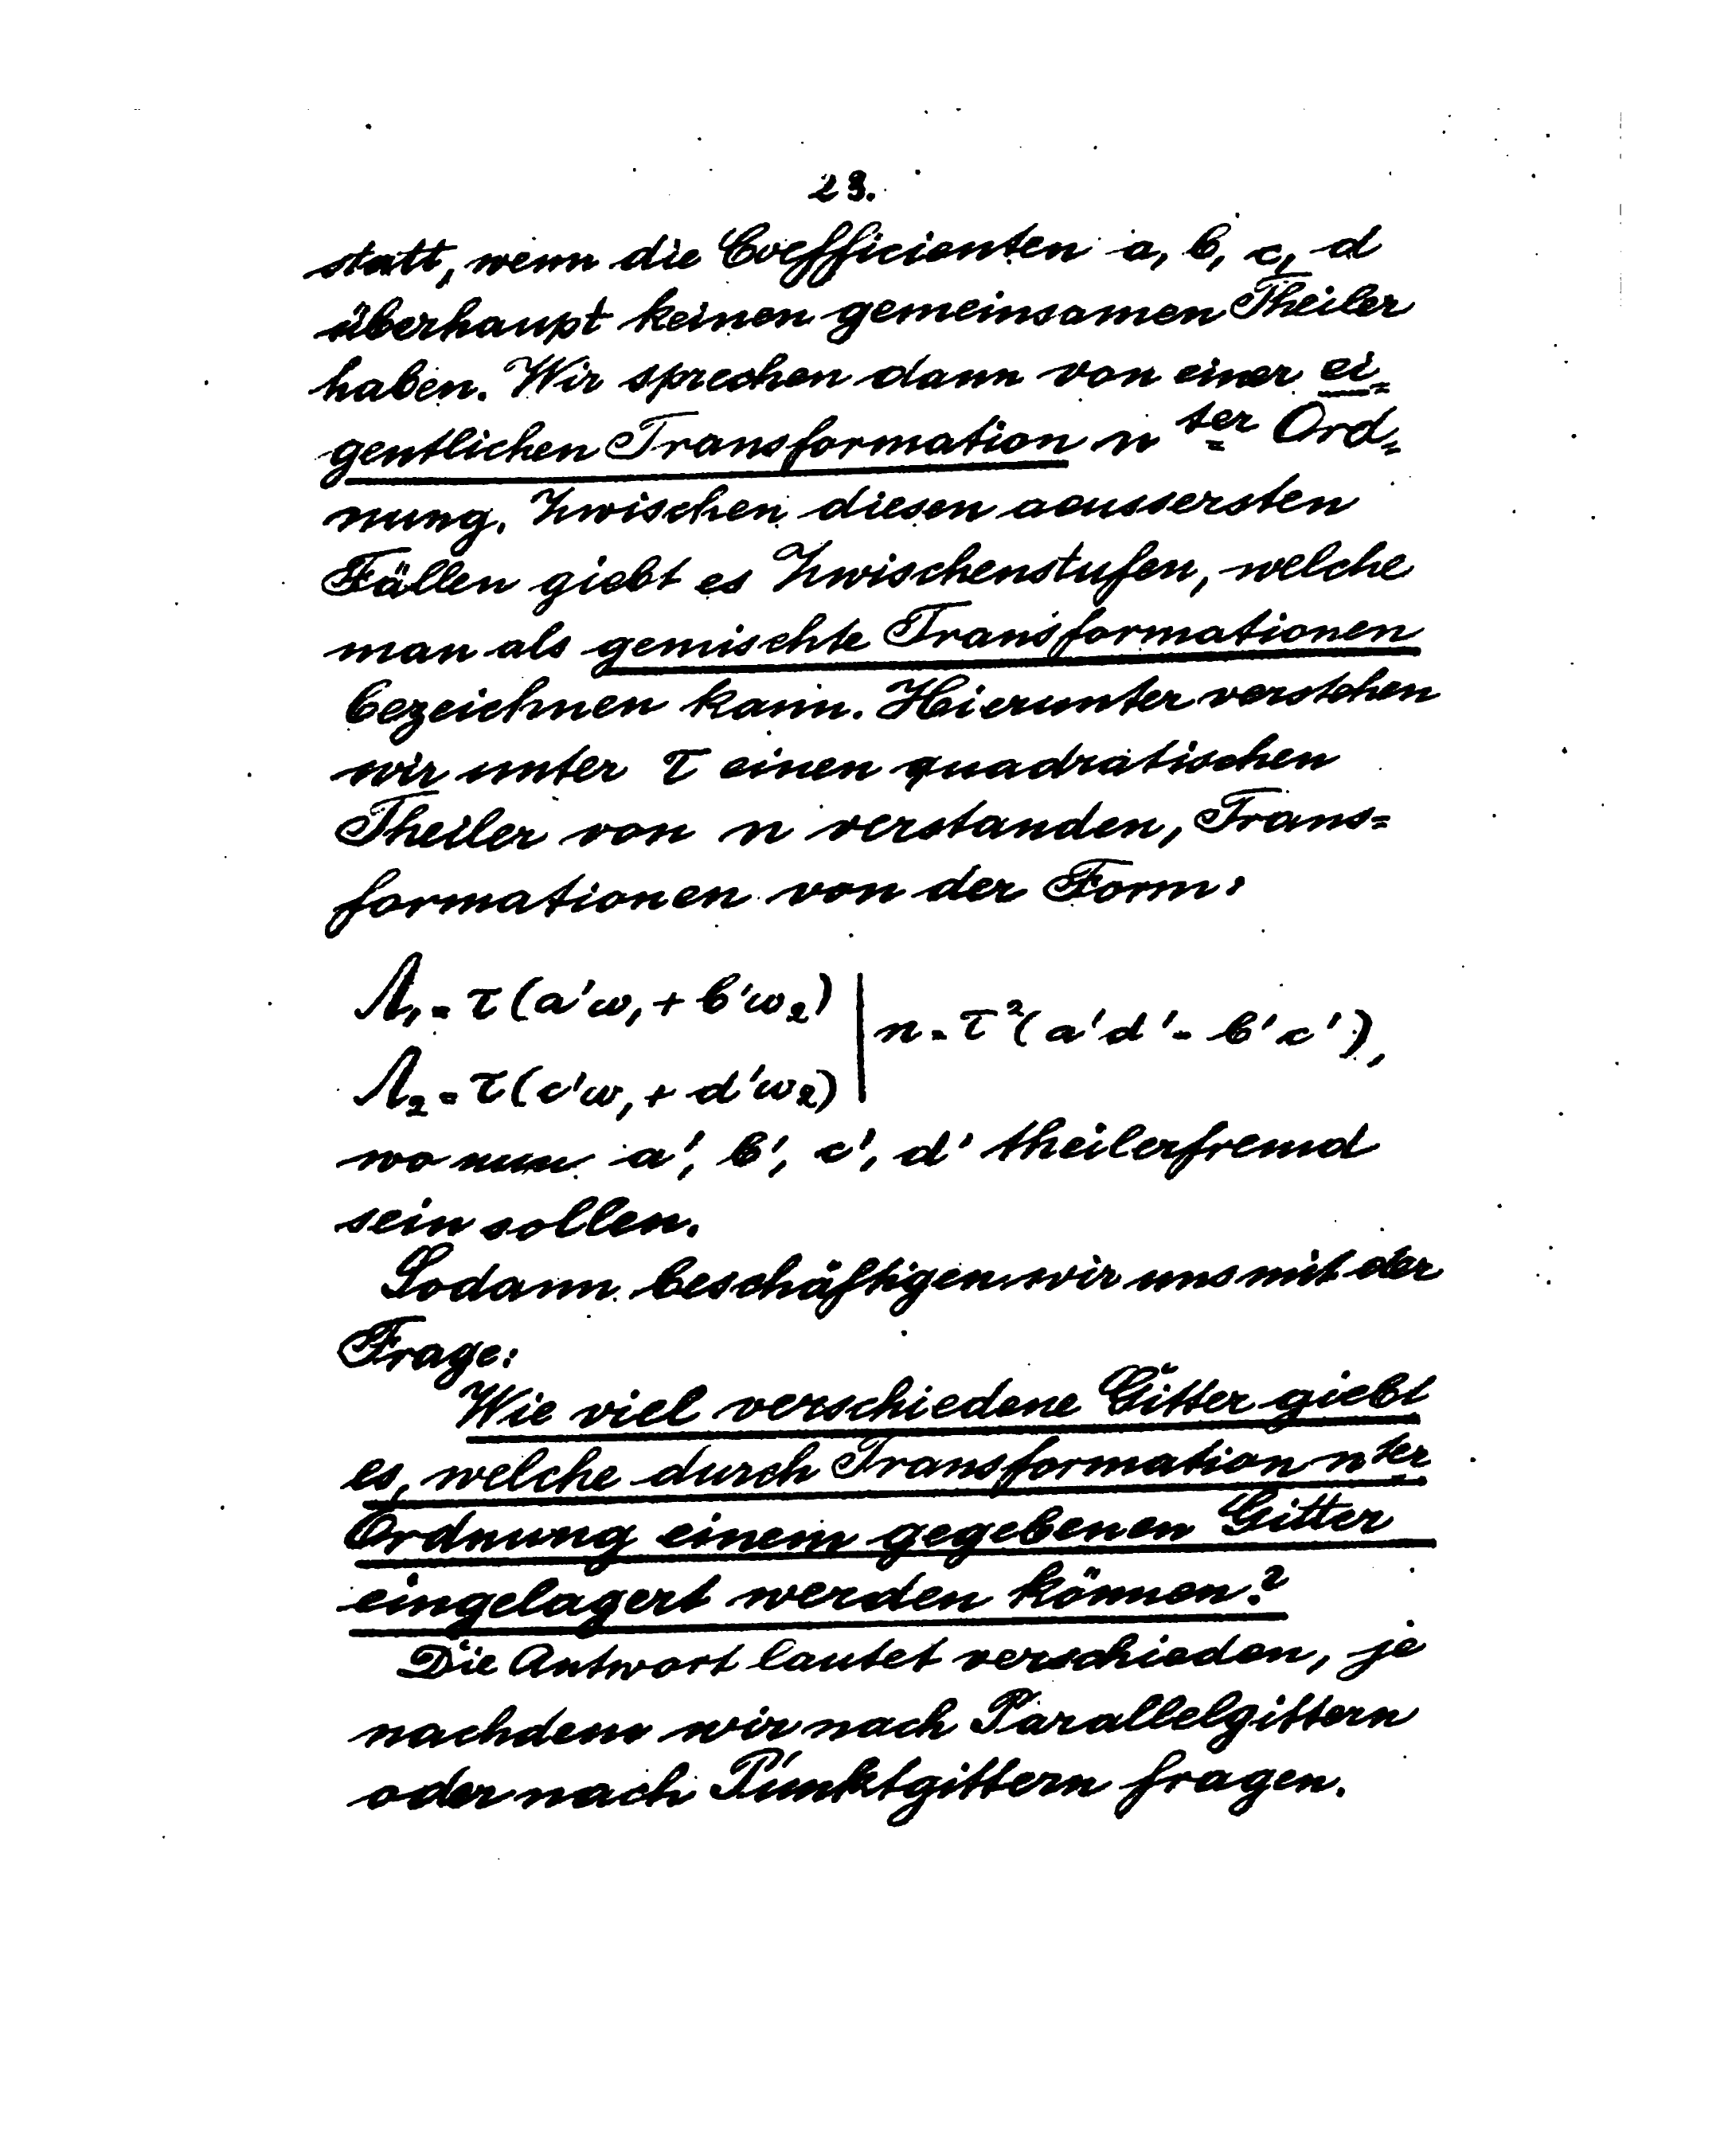 23.
statt, wenn die Coefficienten a, b, c, d
überhaupt keinen gemeinsamen Theiler
haben. Wir sprechen dann von einer ei=
gentlichen Transformation n ter Ord=
nung. Zwischen diesen aeussersten
Fällen giebt es Zwischenstufen, welche
man als gemischte Transformationen
bezeichnen kann. Hierunter verstehen
wir unter τ einen quadratischen
Theiler von n verstanden, Trans=
formationen von der Form:
Λ₁ = τ(a'ω₁ + b'ω₂)
Λ₂ = τ(c'ω₁ + d'ω₂) | n = τ²(a'd' - b'c'),
wo nun a', b', c', d' theilerfremd
sein sollen.
Sodann beschäftigen wir uns mit der
Frage:
Wie viel verschiedene Gitter giebt
es, welche durch Transformation nter
Ordnung einem gegebenen Gitter
eingelagert werden können?
Die Antwort lautet verschieden, je
nachdem wir nach Parallelgittern
oder nach Punktgittern fragen.